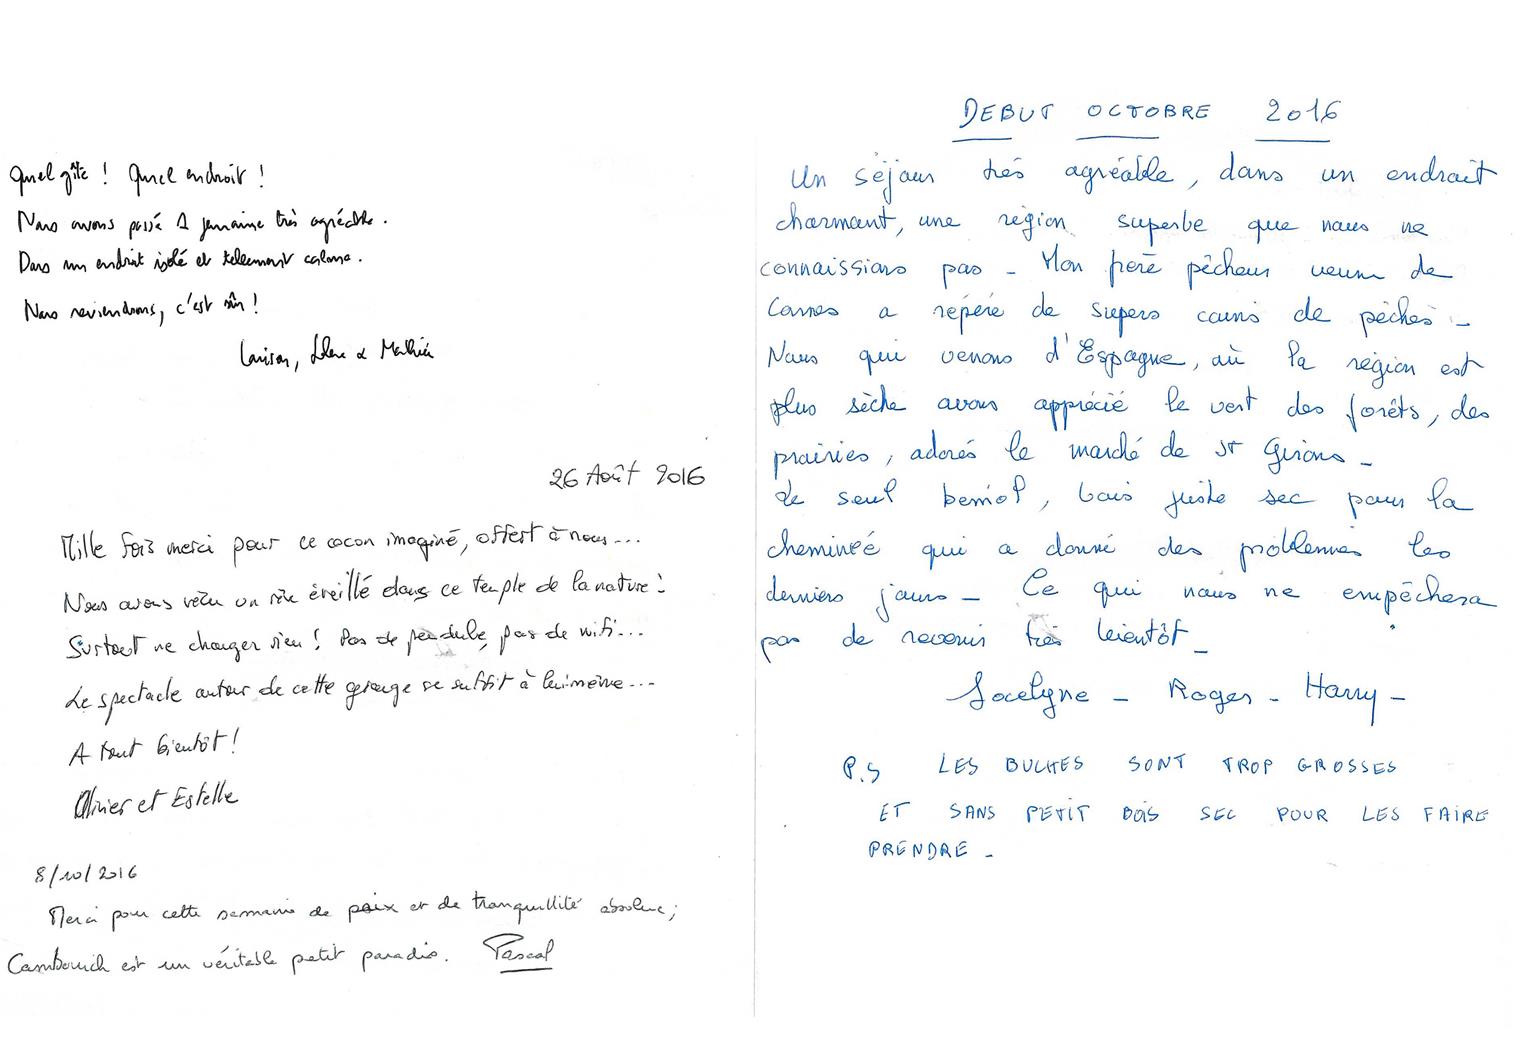 Quel gîte ! Quel endroit !
Nous avons passé 1 semaine très agréable.
Dans un endroit isolé et tellement calme.
Nous reviendrons, c'est sûr !
& Mathieu
26 Août 2016
Mille fois merci pour ce cocon imaginé, offert à nous...
Nous avons vécu un rêve éveillé dans ce temple de la nature !
Surtout ne changer rien ! Pas de pendule, pas de wifi...
Le spectacle autour de cette grange se suffit à lui-même...
A tout bientôt !
Olivier et Estelle
8/10/2016
Merci pour cette semaine de paix et de tranquillité absolue ;
Cambouich est un véritable petit paradis. Pascal
DEBUT OCTOBRE 2016
Un séjour très agréable, dans un endroit
charmant, une région superbe que nous ne
connaissions pas - Mon père pêcheur venu de
Cannes a répéré de supers coins de pêches -
Nous qui venons d'Espagne, où la région est
plus sèche avons apprécié le vert des forêts, des
prairies, adorés le marché de St Girons -
Le seul bemol, bois juste sec pour la
cheminée qui a donné des problemes les
derniers jours - Ce qui nous ne empêchera
pas de revenir très bientôt -
Jocelyne - Roger - Harry -
P.S LES BUCHES SONT TROP GROSSES
ET SANS PETIT BOIS SEC POUR LES FAIRE
PRENDRE -